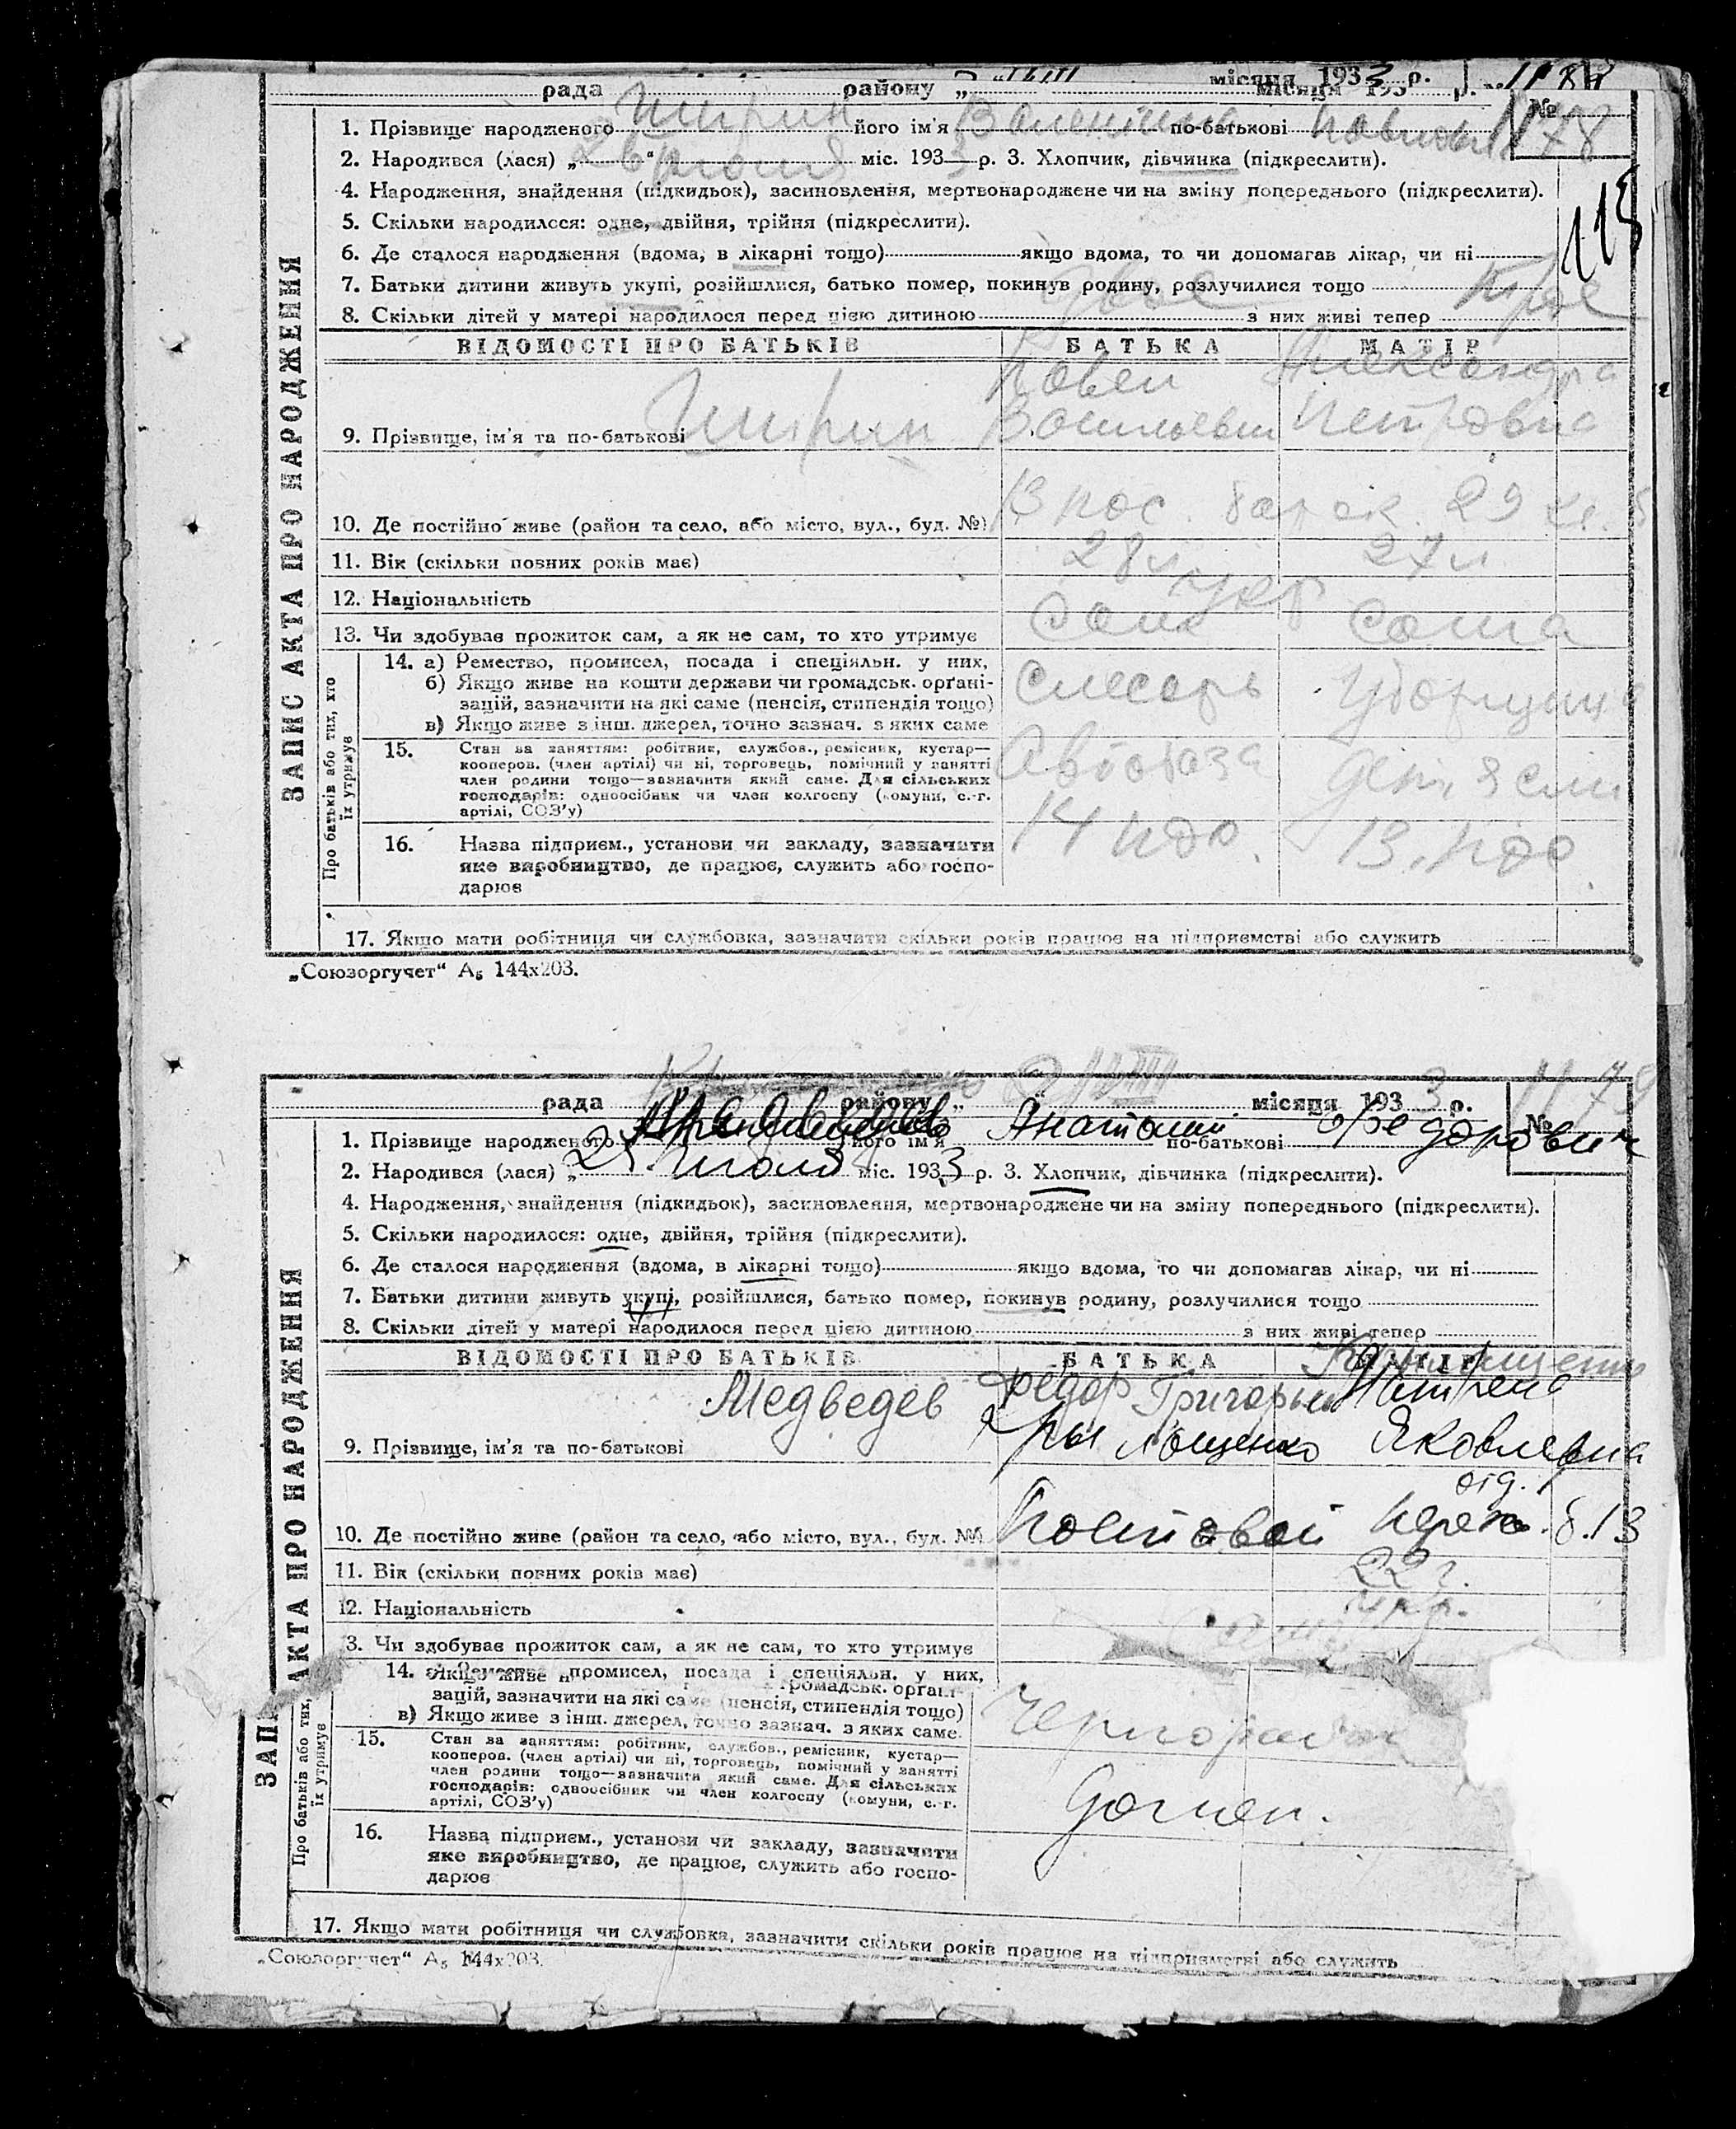 рада району „ місяця 1933 р.
№ 1178
1. Прізвище народженого Ширин його ім'я Валентина по-батькові Павловна
2. Народився (лася) „26“ июля міс. 193 р. 3. Хлопчик, дівчинка (підкреслити).
115
4. Народження, знайдення (підкидьок), засиновлення, мертвонароджене чи на зміну попереднього (підкреслити).
5. Скільки народилося: одне, двійня, трійня (підкреслити).
6. Де сталося народження (вдома, в лікарні тощо) якщо вдома, то чи допомагав лікар, чи ні
7. Батьки дитини живуть укупі, розійшлися, батько помер, покинув родину, розлучилися тощо
8. Скільки дітей у матері народилося перед цією дитиною двое з них живі тепер трое
ЗАПИС АКТА ПРО НАРОДЖЕННЯ
ВІДОМОСТІ ПРО БАТЬКІВ БАТЬКА МАТІР
Павел Александра
9. Прізвище, ім'я та по-батькові Ширин Васильевич Петровна
10. Де постійно живе (район та село, або місто, вул., буд. №) 13 пос. барак. 29
11. Вік (скільки повних років має) 28 л 27 л
12. Національність укр
13. Чи здобував прожиток сам, а як не сам, то хто утримує Сам Сама
Про батьків або тих, хто їх утримує
14. а) Ремество, промисел, посада і спеціяльн. у них,
б) Якщо живе на кошти держави чи громадськ. органі-
зацій, зазначити на які саме (пенсія, стипендія тощо)
в) Якщо живе з інш. джерел, точно зазнач. з яких саме
Слесарь Уборщица
15. Стан за заняттям: робітник, службов., ремісник, кустар—
кооперов. (член артілі) чи ні, торговець, помічний у занятті
член родини тощо—зазначити який саме. Для сільських
господарів: одноосібник чи член колгоспу (комуни, с.-г.
артілі, СОЗ'у)
Автобаза Дет. Ясли
16. Назва підприєм., установи чи закладу, зазначити
яке виробництво, де працює, служить або госпо-
дарює
17. Якщо мати робітниця чи службовка, зазначити скільки років працює на підприємстві або служить
„Союзоргучет“ А₅ 144х203.
рада району „ місяця 1933 р. № 1179
1. Прізвище народженого його ім'я Анатолий по-батькові Федорович
2. Народився (лася) „ июля міс. 1933 р. 3. Хлопчик, дівчинка (підкреслити).
4. Народження, знайдення (підкидьок), засиновлення, мертвонароджене чи на зміну попереднього (підкреслити).
5. Скільки народилося: одне, двійня, трійня (підкреслити).
6. Де сталося народження (вдома, в лікарні тощо) якщо вдома, то чи допомагав лікар, чи ні
7. Батьки дитини живуть укупі, розійшлися, батько помер, покинув родину, розлучилися тощо
8. Скільки дітей у матері народилося перед цією дитиною з них живі тепер
АКТА ПРО НАРОДЖЕННЯ
ВІДОМОСТІ ПРО БАТЬКІВ БАТЬКА МАТІР
Медведев Федор Григорьевич
9. Прізвище, ім'я та по-батькові Яковлевна
10. Де постійно живе (район та село, або місто, вул., буд. №) Почтовой б. 13
11. Вік (скільки повних років має) 22 г.
12. Національність укр.
3. Чи здобував прожиток сам, а як не сам, то хто утримує
ЗАП
Про батьків або тих, їх утримує
14. промисел, посада і спеціяльн. у них,
Якщо живе н громадськ. органі-
зацій, зазначити на які саме (пенсія, стипендія тощо)
в) Якщо живе з інш. джерел, точно зазнач. з яких саме
Чернорабоч
15. Стан за заняттям: робітник, службов., ремісник, кустар—
кооперов. (член артілі) чи ні, торговець, помічний у занятті
член родини тощо—зазначити який саме. Для сільських
господарів: одноосібник чи член колгоспу (комуни, с.-г.
артілі, СОЗ'у)
Домен.
16. Назва підприєм., установи чи закладу, зазначити
яке виробництво, де працює, служить або госпо-
дарює
17. Якщо мати робітниця чи службовка, зазначити скільки років працює на підприємстві або служить
„Союзоргучет“ А₅ 144х203.